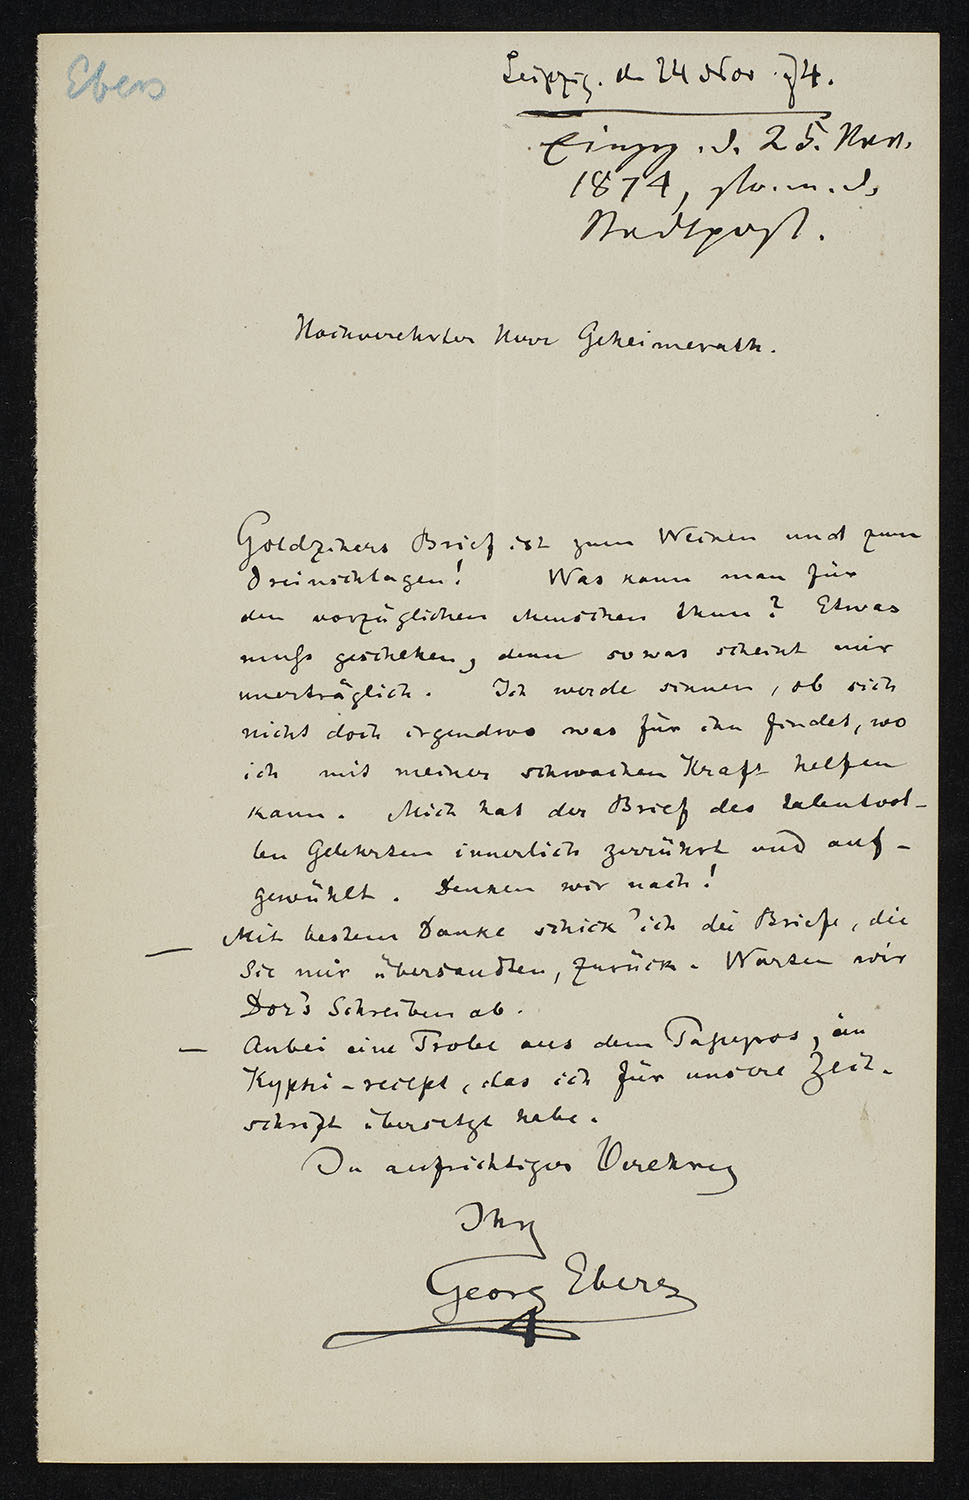 Ebers
Leipzig. d. 24 Nov 74.
Eingg. d. 25. Nov.
1874, m. d.
Stadtpost.
Hochverehrter Herr Geheimerath.
Goldzihers Brief ist zum Weinen und zum
Dreinschlagen! Was kann man für
den vorzüglichen Menschen thun? Etwas
muß geschehen, denn sowas scheint mir
unerträglich. Ich werde sinnen, ob sich
nicht doch irgendwo was für ihn findet, wo
ich mit meiner schwachen Kraft helfen
kann. Mich hat der Brief des talentvol-
len Gelehrten innerlich zerrührt und auf-
gewühlt. Denken wir nach!
— Mit bestem Danke schick' ich die Briefe, die
Sie mir übersandten, zurück. Warten wir
Dor's Schreiben ab.
— Anbei eine Probe aus dem Papyros, ein
Kyphi-recept, das ich für unsere Zeit-
schrift übersetzt habe.
In aufrichtiger Verehrung
Ihr
Georg Ebers